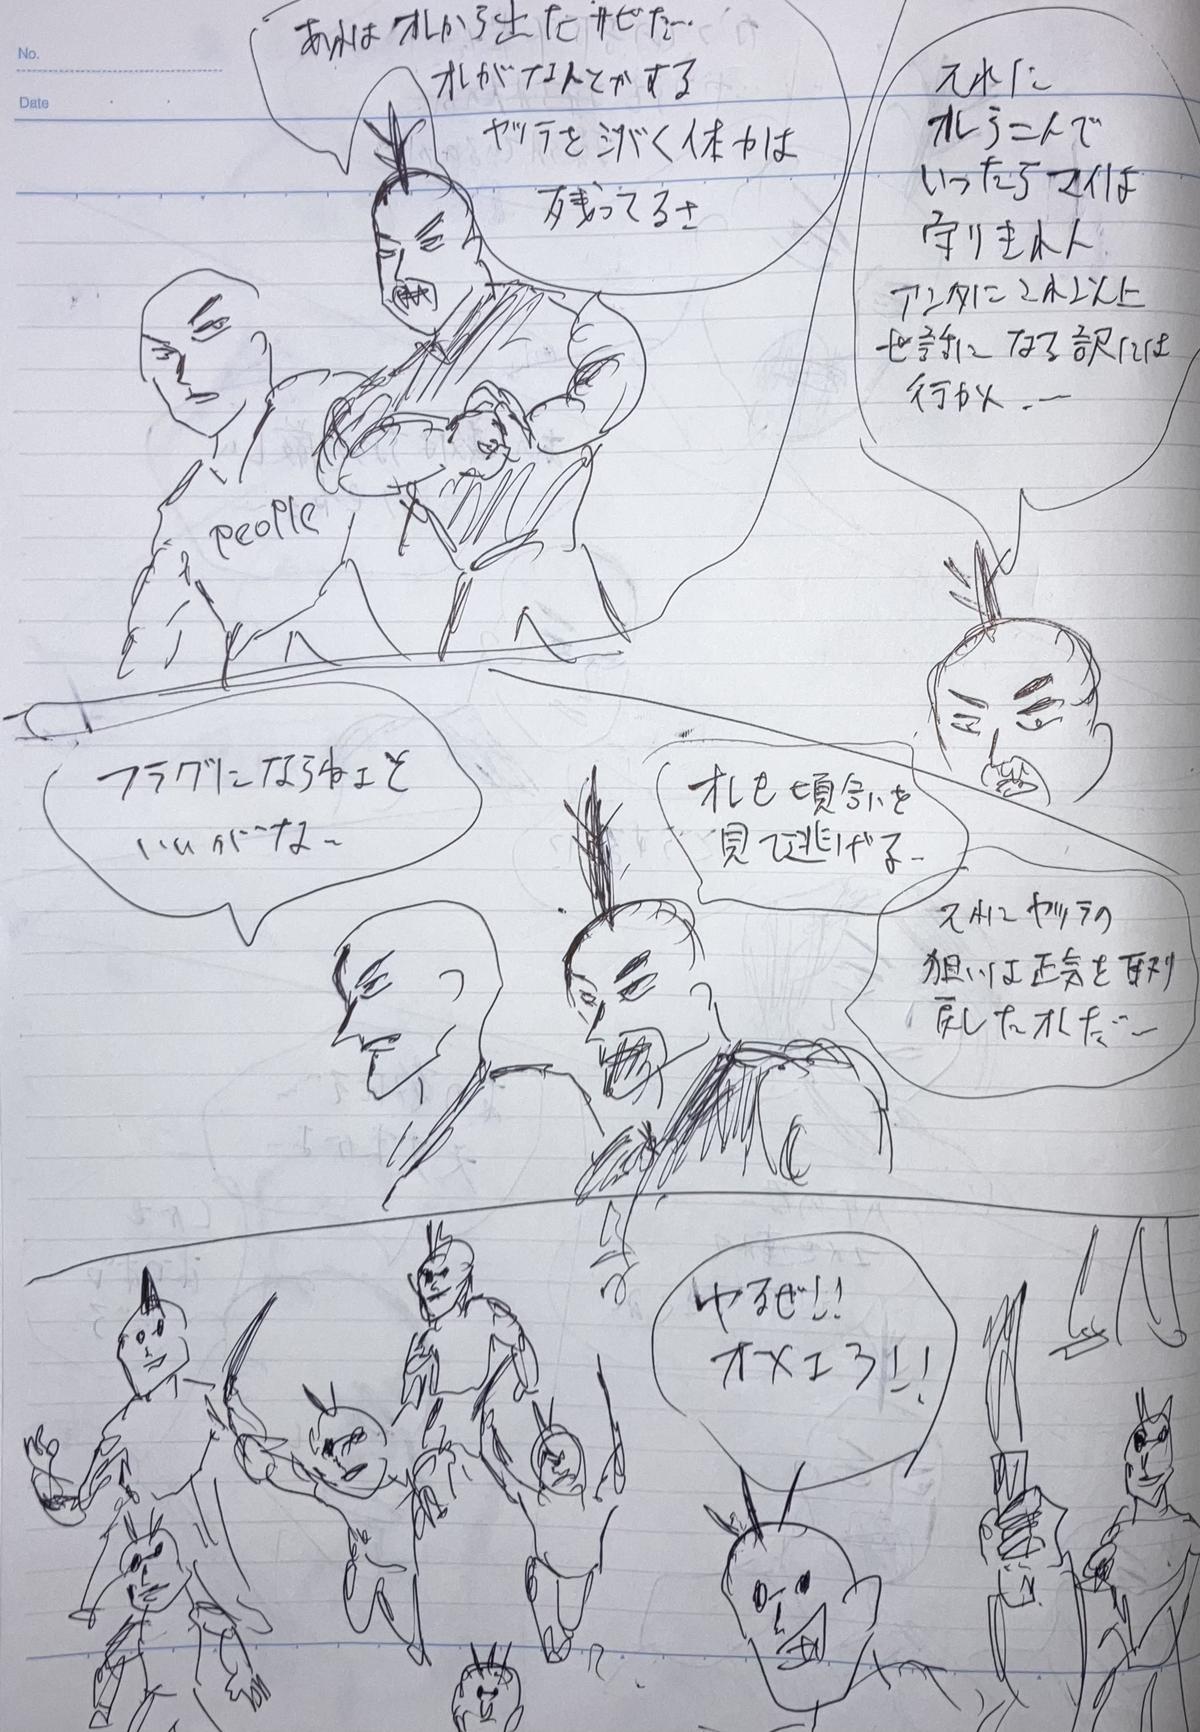 No.
Date
それに
オレらこんで
いったらマイは
守りきれん
アンタにこれ以上
世話になる訳には
行かん…
あれはオレから出たサビだ…
オレがなんとかする
ヤツラを裁く体力は
残ってるさ
PEOPLE
オレも頃合いを
見て逃げる…
それにヤツラの
狙いは正気を取り
戻したオレだ…
フラグにならねェと
いいがな…
やるぜ!!
オメエら!!